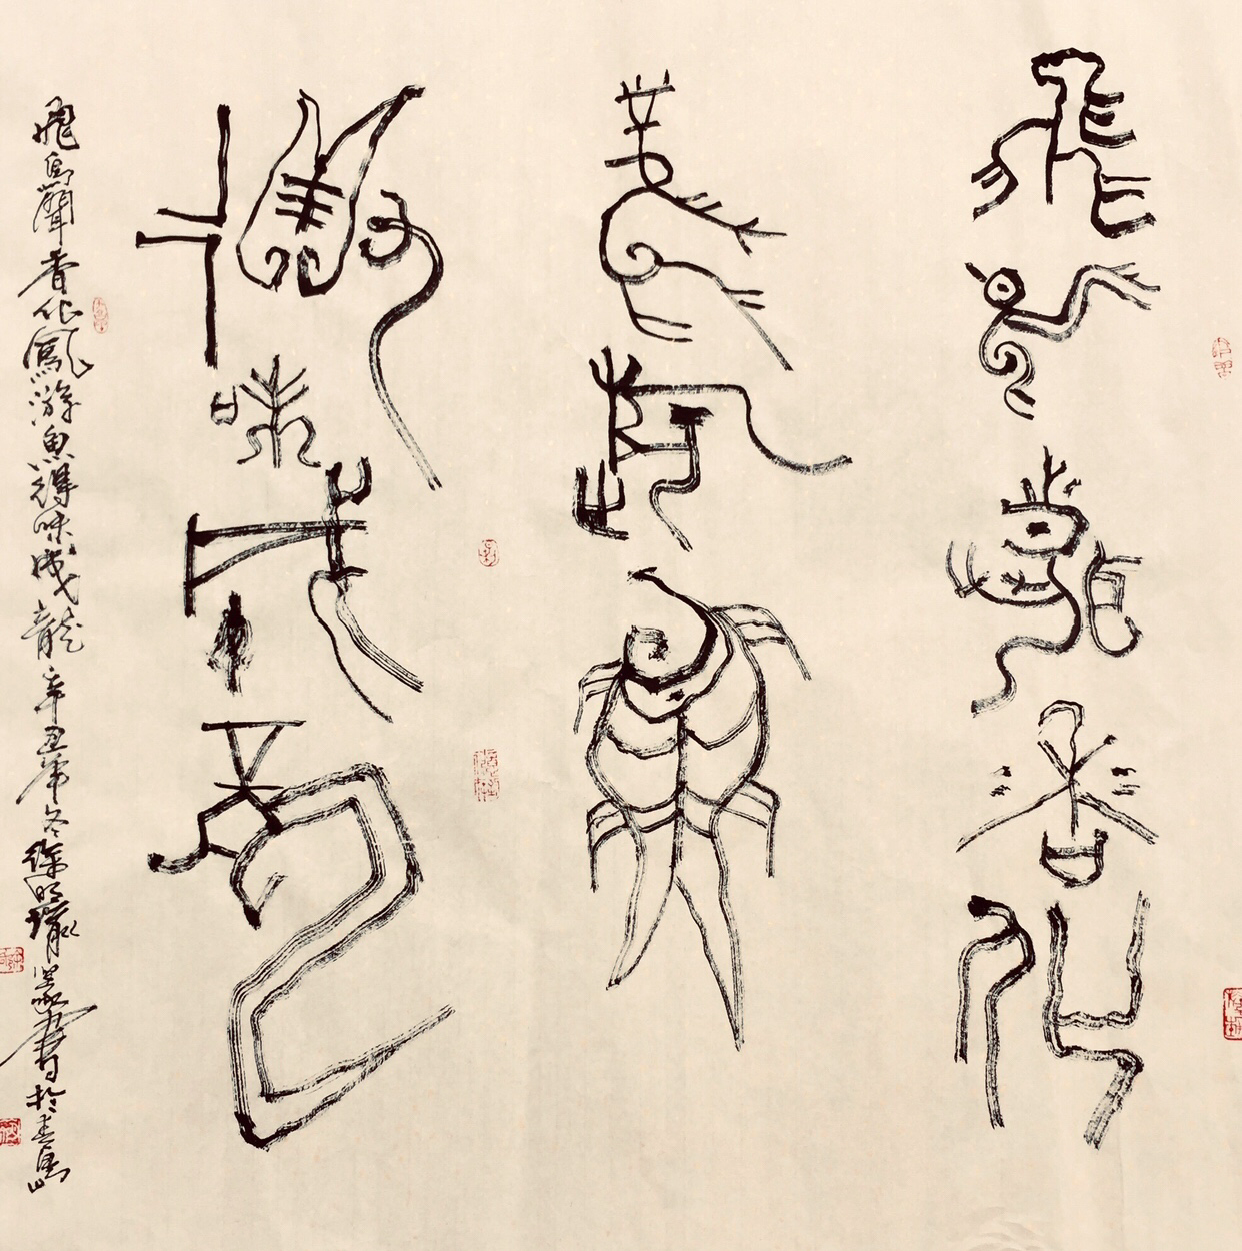 飛鳥聞香化
鳳游魚
得味成龍
飛鳥聞香化鳳游魚得味成龍辛丑年冬徐明
書於青島